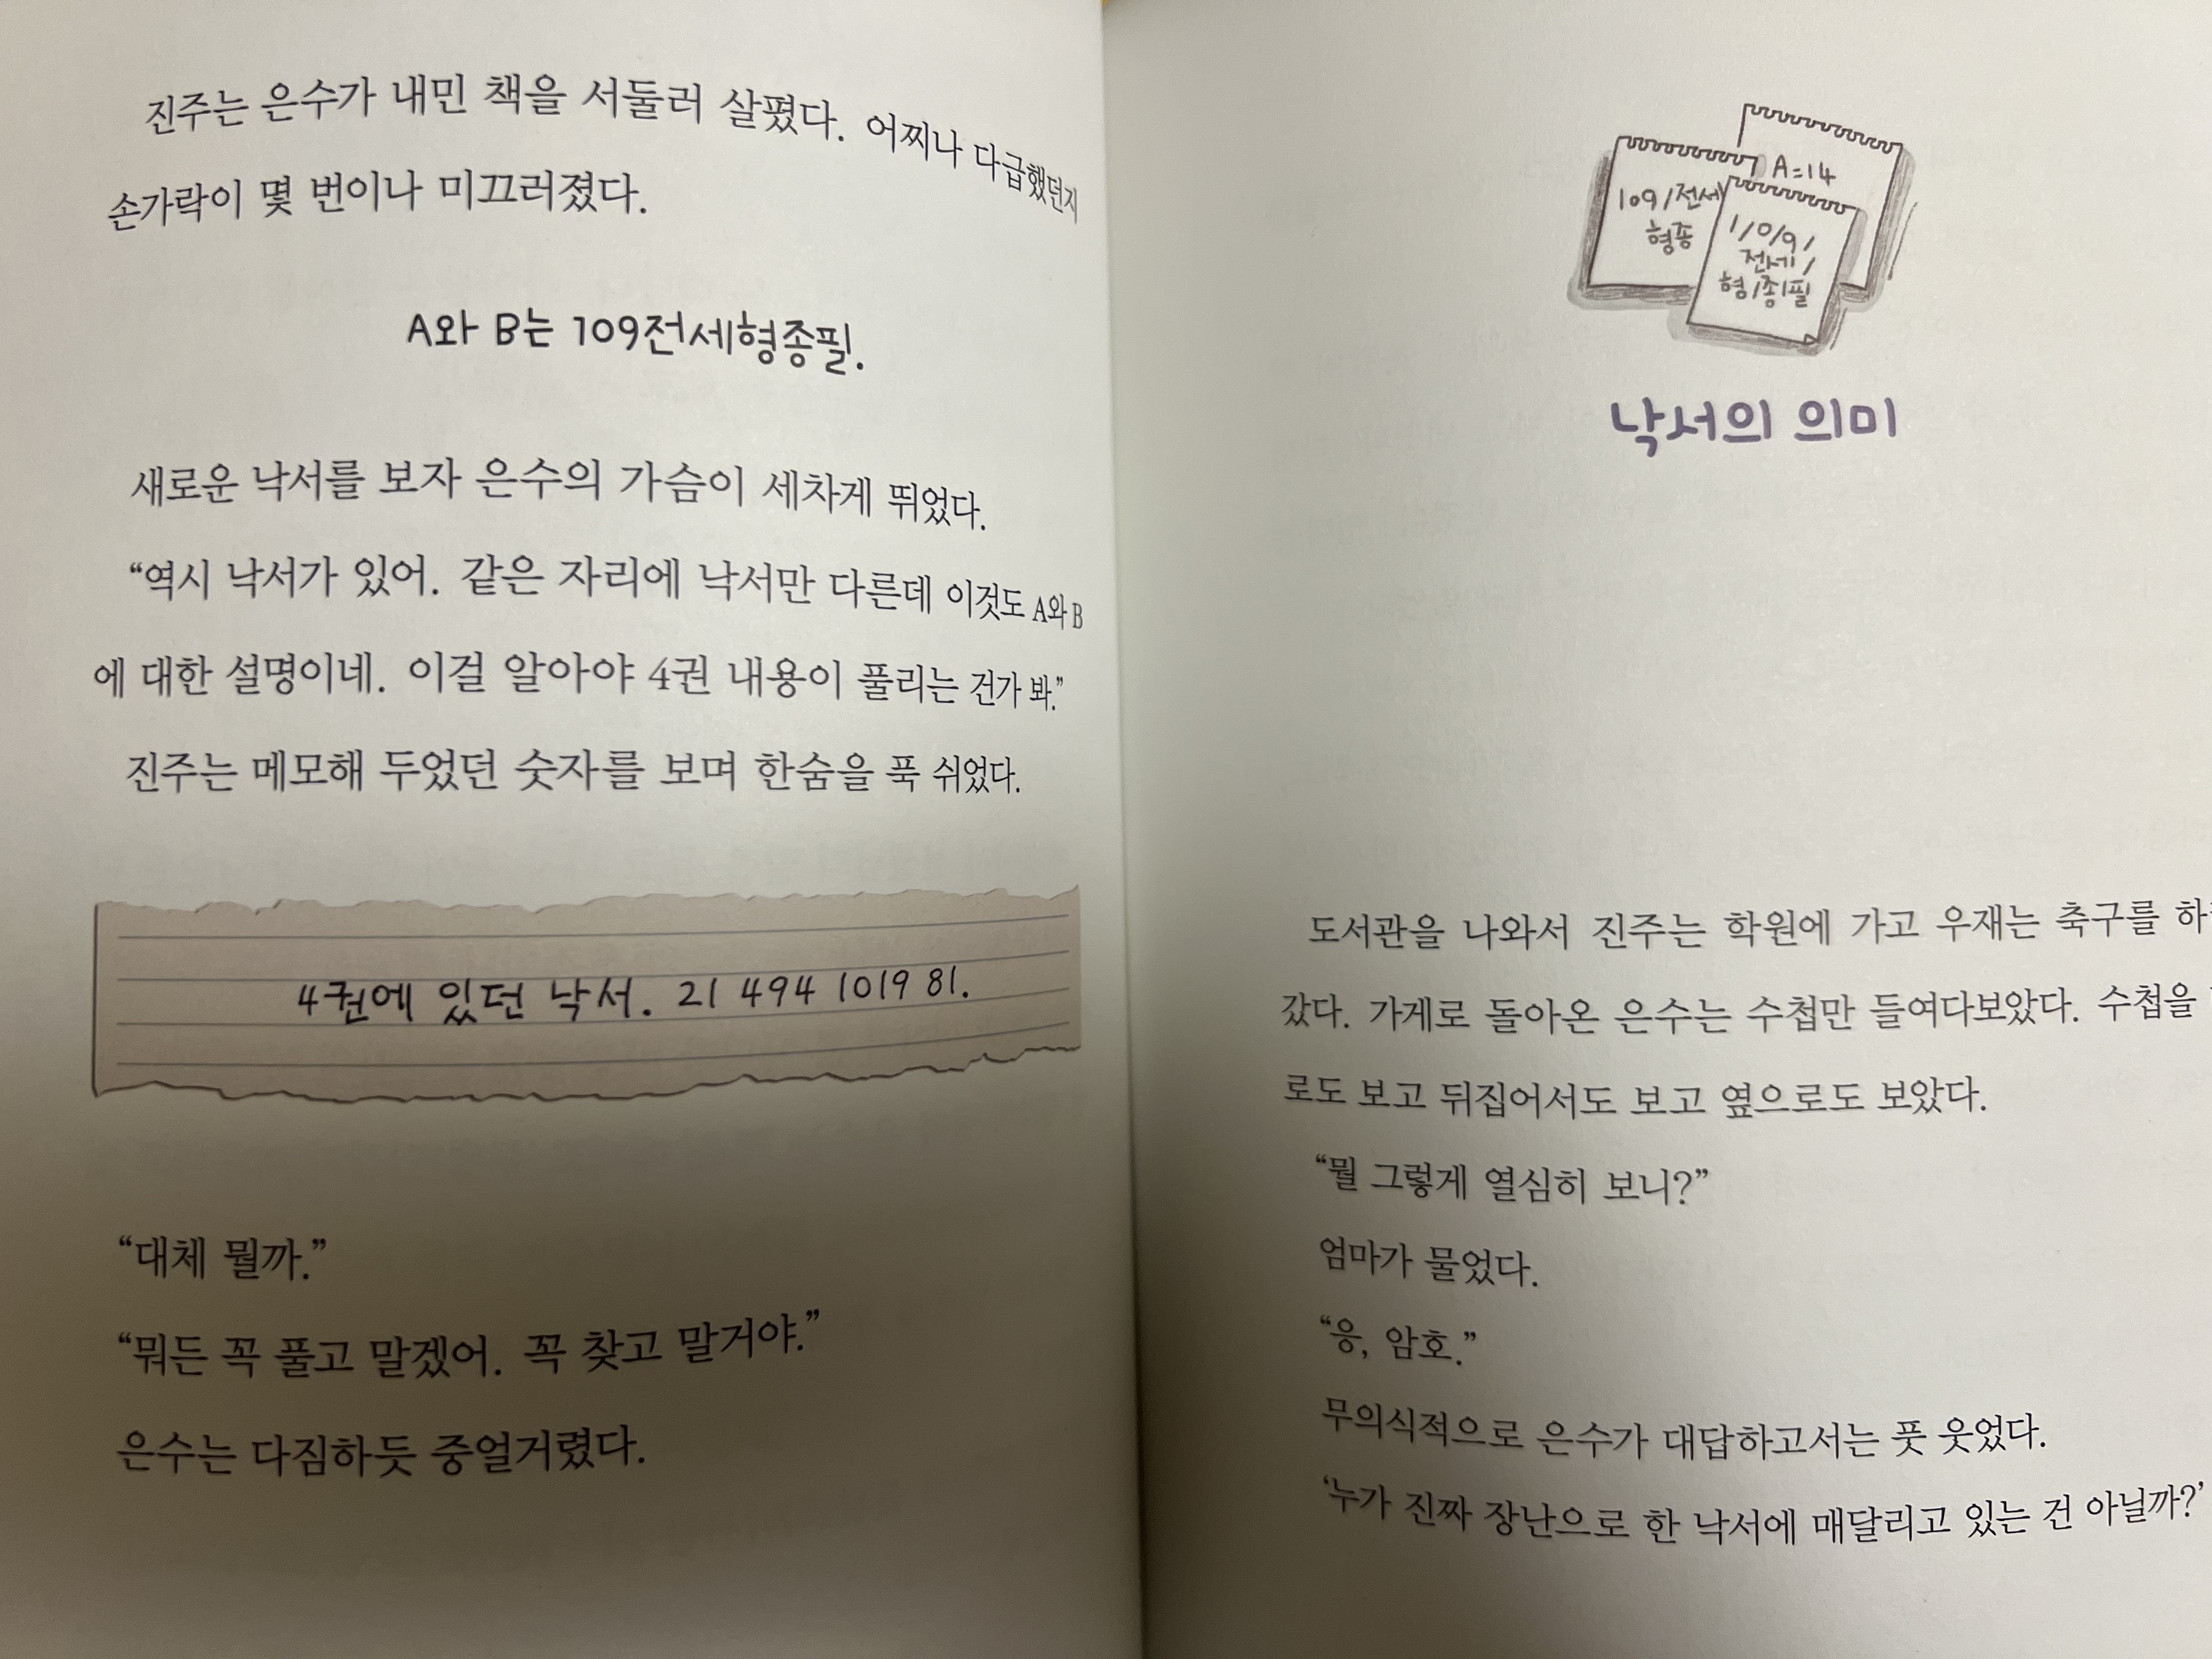 진주는 은수가 내민 책을 서둘러 살폈다. 어찌나 다급했던지
손가락이 몇 번이나 미끄러졌다.
A와 B는 109전세형종필.
새로운 낙서를 보자 은수의 가슴이 세차게 뛰었다.
“역시 낙서가 있어. 같은 자리에 낙서만 다른데 이것도 A와 B
에 대한 설명이네. 이걸 알아야 4권 내용이 풀리는 건가 봐.”
진주는 메모해 두었던 숫자를 보며 한숨을 푹 쉬었다.
4권에 있던 낙서. 21 494 1019 81.
“대체 뭘까.”
“뭐든 꼭 풀고 말겠어. 꼭 찾고 말거야.”
은수는 다짐하듯 중얼거렸다.
A=14
109/전세
형종
1/0/9/
전세/
형/종/필
낙서의 의미
도서관을 나와서 진주는 학원에 가고 우재는 축구를 하
갔다. 가게로 돌아온 은수는 수첩만 들여다보았다. 수첩을
로도 보고 뒤집어서도 보고 옆으로도 보았다.
“뭘 그렇게 열심히 보니?”
엄마가 물었다.
“응, 암호.”
무의식적으로 은수가 대답하고서는 풋 웃었다.
‘누가 진짜 장난으로 한 낙서에 매달리고 있는 건 아닐까?’